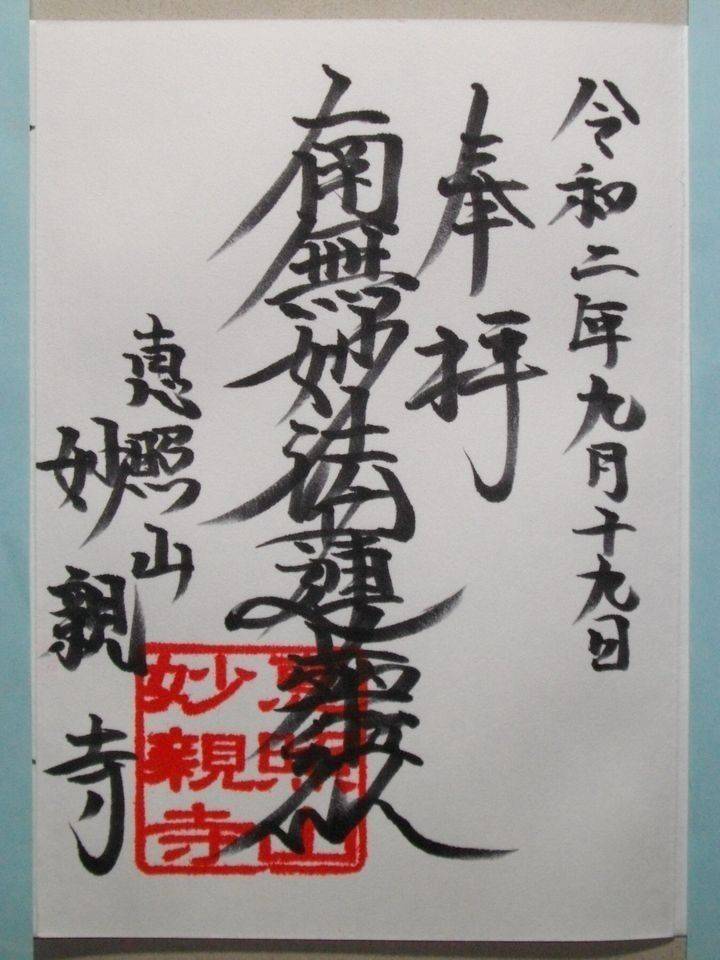 令和二年九月十九日
奉拝
南無妙法蓮華経
恵照山
妙親寺
恵照山
妙親寺